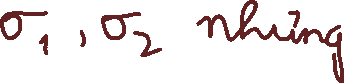 σ₁, σ₂ nhưng